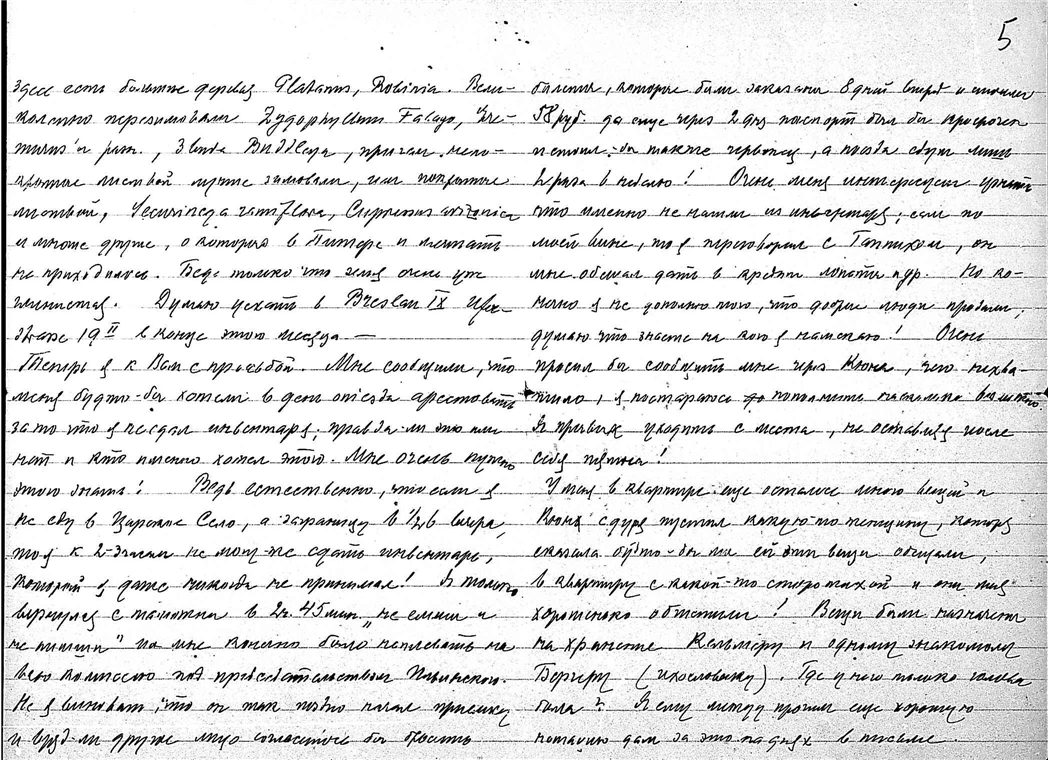 5
здесь есть большие деревья Platanus, Robinia. Вели-
колепно перезимовали Zygophyllum Fabago,
, 3 вида Buddleya, причем
листвой лучше зимовали, чем покрытые
листвой, Securinega ramiflora, Cupressus arizonica
и многие другие, о которых в Питере и мечтать
не приходилось. Беда только что земля очень уж
глинистая. Думаю уехать в Breslau IX
19 II в конце этого месяца —
Теперь я к Вам с просьбой. Мне сообщили, что
меня будто-бы хотели в день отъезда арестовать
за то что я не сдал инвентаря; правда-ли это или
нет и кто именно хотел этого. Мне очень нужно
этого знать! Ведь естественно, что если я
не еду в Царское Село, а заграницу в 1/2 6 вечера,
то я к 2-Земли не могу-же сдать инвентарь,
который я даже никогда не принимал! Я только
вернулся с таможни в 2 ч. 45 мин. „не емши и
не пимши" и мне конечно было наплевать на
всю комиссию под председательством Ильинской.
Не я виноват, что он так поздно начал приемку
и вряд-ли другое лицо согласилось бы бросить
билеты, которые были заказаны 8 дней вперед и стоили
58 руб. да еще через 2 дня паспорт был бы просрочен
и стоил-бы также червонец, а поезда едут лишь
2 раза в неделю! Очень меня интересует узнать
что именно не нашли из инвентаря; если по
моей вине, то я переговорил с Таппихом, он
мне обещал дать в кредит лопаты и др. Но ко-
нечно я не дополню того, что добрые люди продали,
думаю что знаете на кого я намекаю! Очень
просил бы сообщить мне через Кюна, чего нехва-
тило, я постараюсь пополнить насколько возможно.
Я привык уходить с места, не оставляя после
себя пятна!
У меня в квартире еще осталось много вещей и
Кюна сдуру пустил какую-то женщину, которая
сказала будто-бы мы ей эти вещи обещали,
в квартиру с какой-то сторожихой и они там
хорошенько обчистили! Вещи были назначены
на хранение Кельмеру и одному знакомому
Бергеру (ихословнику). Где у него только голова
была? Я ему между прочим еще хорошую
нотацию дам за это на днях в письме.